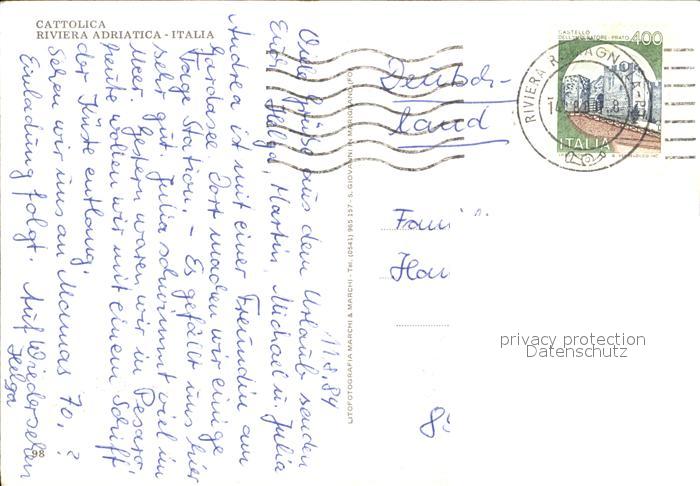 CATTOLICA
RIVIERA ADRIATICA - ITALIA
11.8.84
Viele Grüße aus dem Urlaub senden
Euch Helga, Martin, Michael u. Julia
Andrea ist mit einer Freundin am
Gardasee. Dort machen wir einige
Tage Station. - Es gefällt uns hier
sehr gut. Julia schwimmt viel im
Meer. Gestern waren wir in Pesaro
heute wollen wir mit einem Schiff
der Küste entlang.
Sehen wir uns an Mamas 70.?
Einladung folgt. Auf Wiedersehen
Helga
98
LITOFOTOGRAFIA MARCHI & MARCHI - Tel. (0541) 965 157 - S. GIOVANNI IN
Deutsch-
land
CASTELLO
DELL'IMPERATORE - PRATO
400
ITALIA
RIVIERA
Fami
Hau
privacy protection
Datenschutz